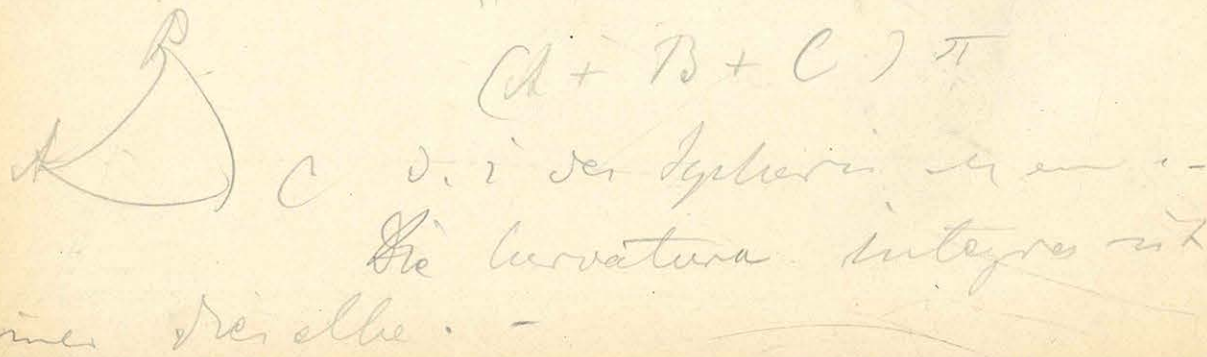 B
(A + B + C) π
A
C d. i der Sphäris
Die curvatura integra ist
immer dieselbe. -